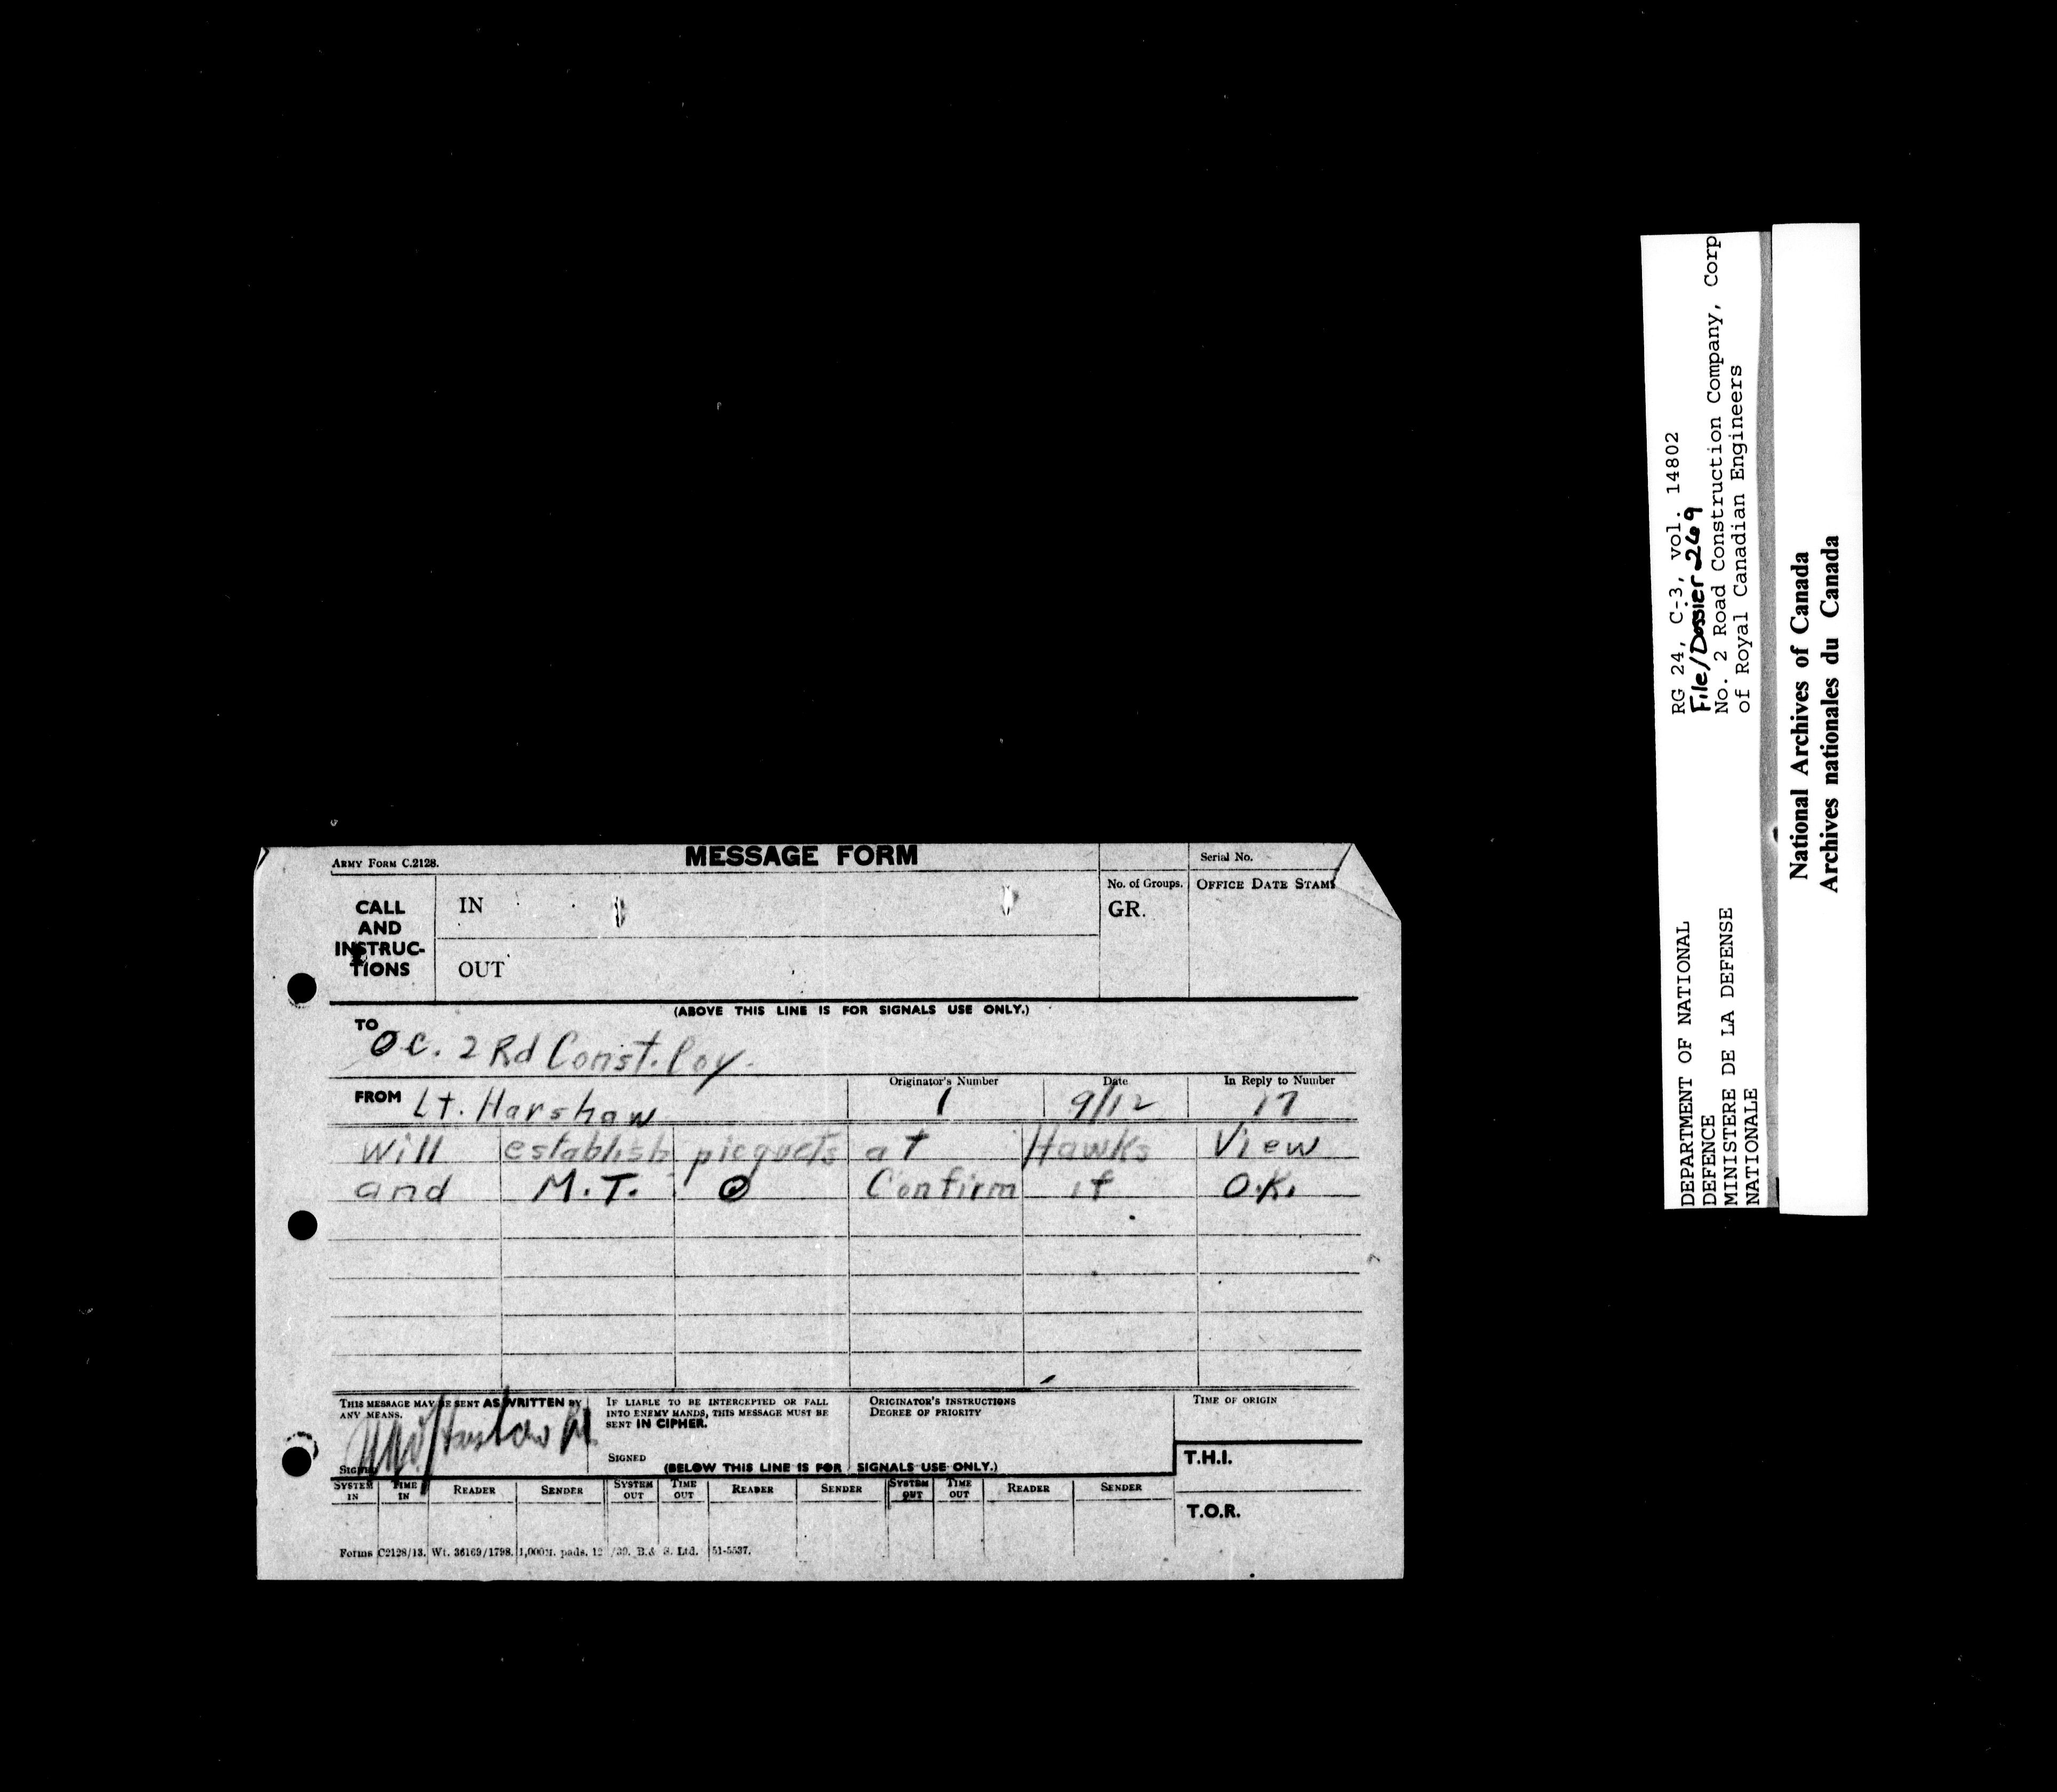 ARMY FORM C.2128.
MESSAGE FORM
Serial No.
CALL AND INSTRUC- TIONS
IN
No. of Groups.
GR.
OFFICE DATE STAMP
OUT
(ABOVE THIS LINE IS FOR SIGNALS USE ONLY.)
TO
O.C. 2 Rd Const. Coy.
FROM Lt. Harshaw
Originator's Number
1
Date
9/12
In Reply to Number
17
Will establish picquets at Hawks View
and M.T. O Confirm if O.K.
THIS MESSAGE MAY BE SENT AS WRITTEN BY
ANY MEANS.
SIGNED
IF LIABLE TO BE INTERCEPTED OR FALL
INTO ENEMY HANDS, THIS MESSAGE MUST BE
SENT IN CIPHER.
SIGNED
ORIGINATOR'S INSTRUCTIONS
DEGREE OF PRIORITY
TIME OF ORIGIN
T.H.I.
(BELOW THIS LINE IS FOR SIGNALS USE ONLY.)
SYSTEM IN
TIME IN
READER
SENDER
SYSTEM OUT
TIME OUT
READER
SENDER
SYSTEM OUT
TIME OUT
READER
SENDER
T.O.R.
Forms C2128/13. Wt. 36169/1798. 1,000M. pads. 12/39. B.& S. Ltd. 51-5537.
RG 24, C-3, vol. 14802
File/Dossier 269
No. 2 Road Construction Company, Corp
of Royal Canadian Engineers
DEPARTMENT OF NATIONAL
DEFENCE
MINISTERE DE LA DEFENSE
NATIONALE
National Archives of Canada
Archives nationales du Canada